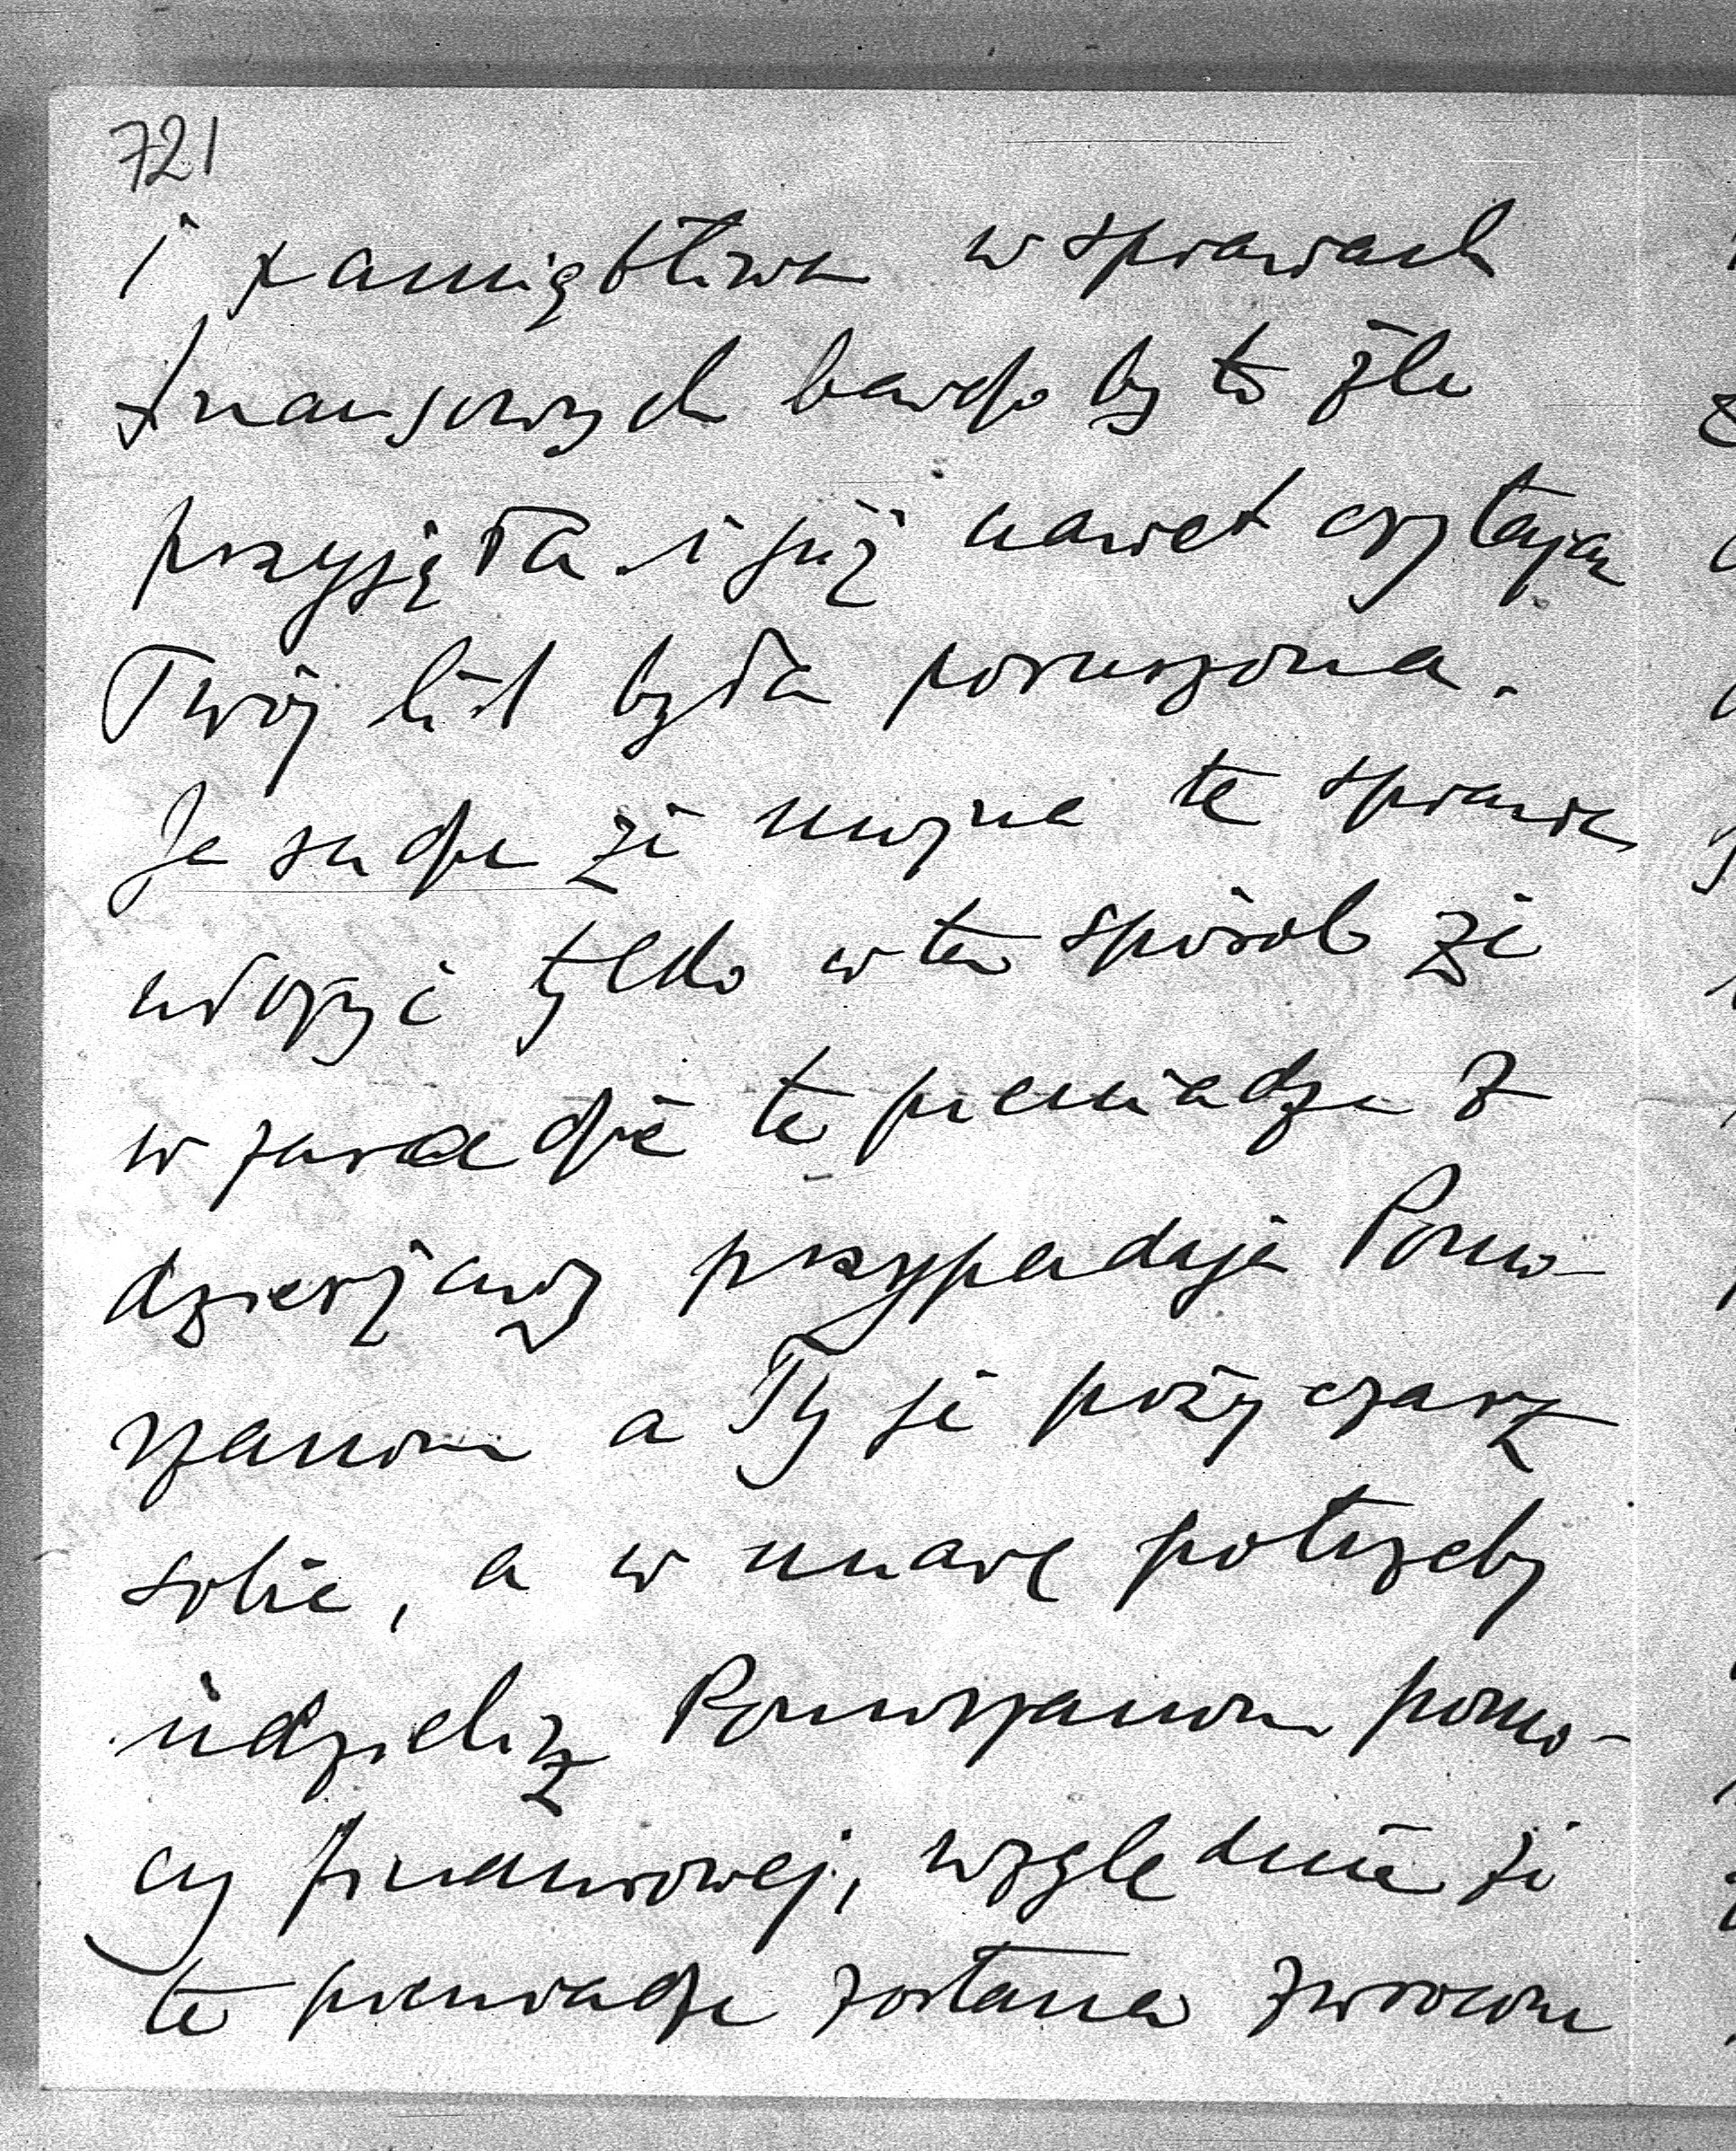 721
i pamiętliwa w sprawach
finansowych bardzo by to źle
przyjęła i już nawet czytając
Twój list była poruszona.
Ja sądze że można te sprawe
ułożyć tylko w ten sposób że
w zasadzie te pieniądze z
dzierżawy przypadają Pomo-
rzanom a Ty je pożyczasz
sobie, a w miarę potrzeby
udzielisz Pomorzanom pomo-
cy finansowej, względnie że
te pieniadze zostaną zwrócone